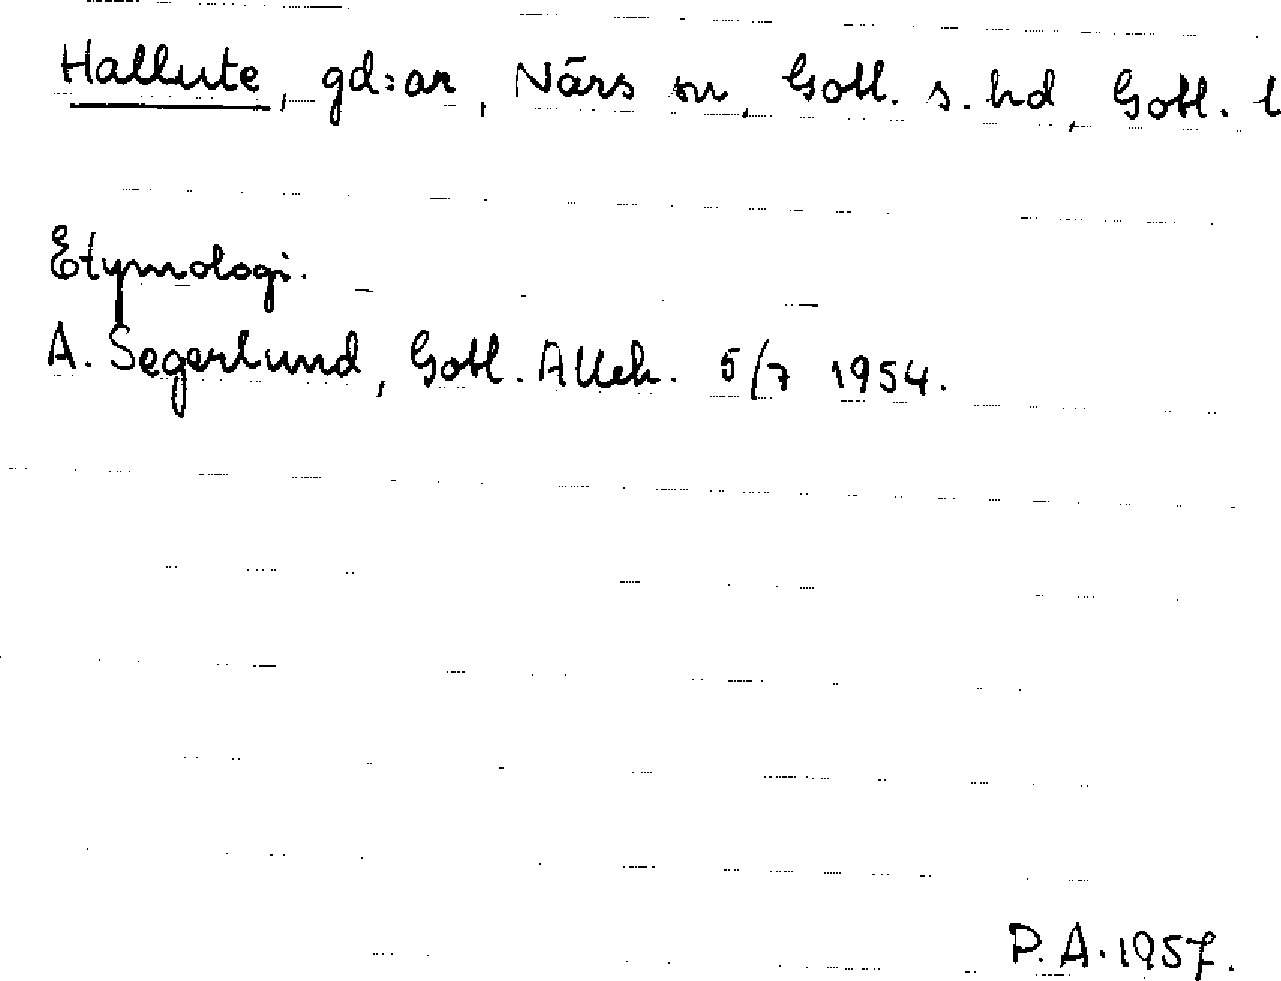 Hallute, gd:ar, Närs sn, Gotl. s. hd, Gotl. l
Etymologi.
A. Segerlund, Gotl. Alleh. 5/7 1954.
P.A. 1957.